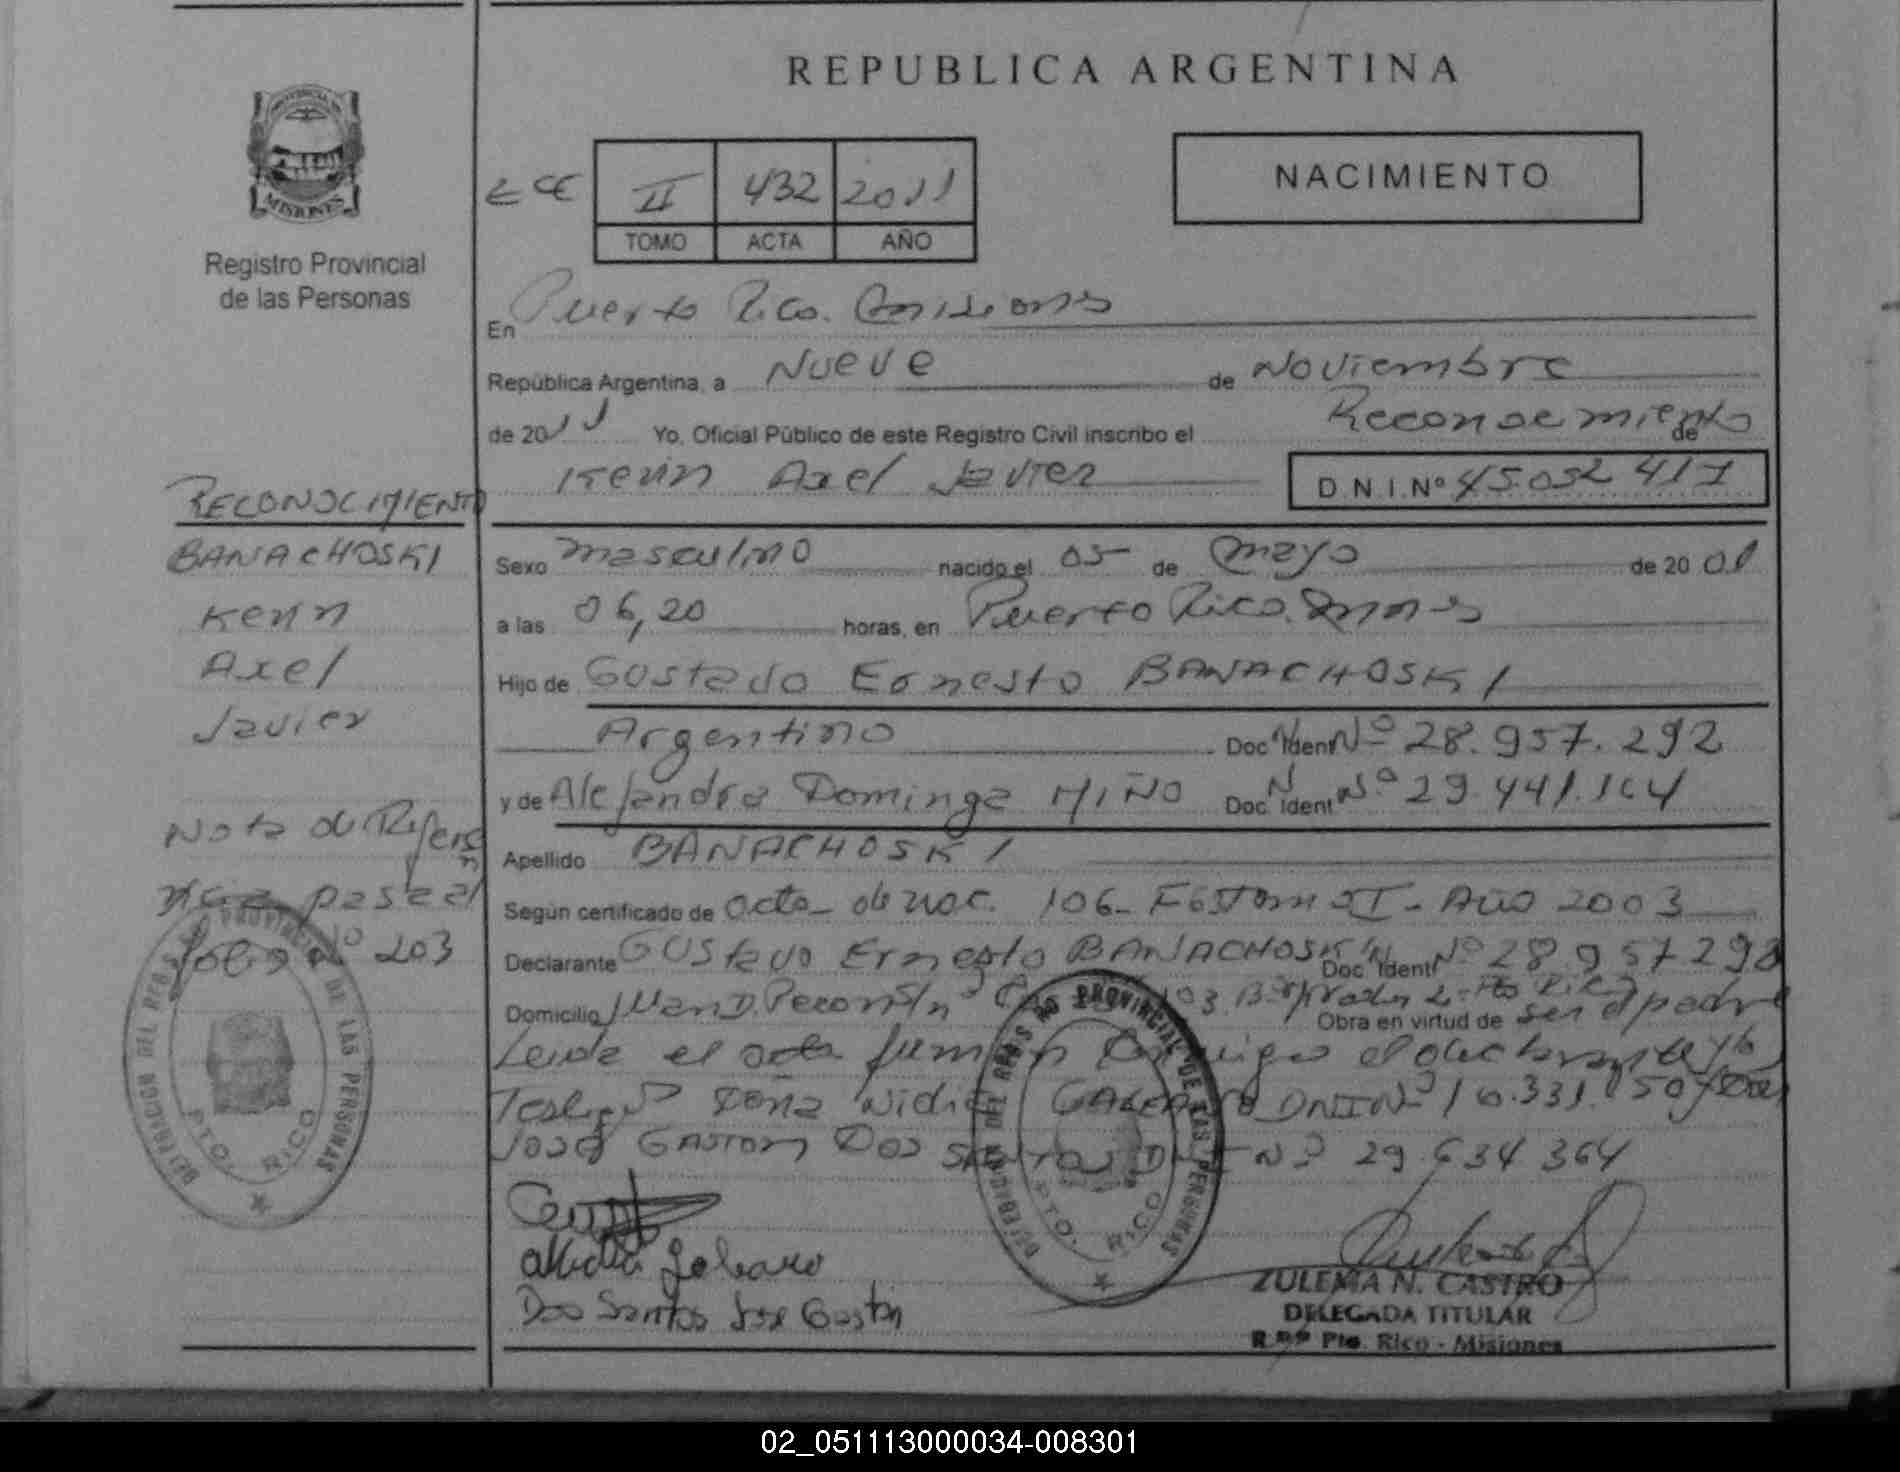 REPUBLICA ARGENTINA
PROVINCIA DE
MISIONES
Registro Provincial
de las Personas
NACIMIENTO
II 432 2011
TOMO ACTA AÑO
En Puerto Rico. Misiones
República Argentina, a Nueve de Noviembre
de 2011 Yo, Oficial Público de este Registro Civil inscribo el Reconocimiento de
Kevin Axel Javier D.N.I.Nº 45.052 417
RECONOCIMIENTO
BANACHOSKI
Kevin
Axel
Javier
Nota de Referen
cia pasa al
folio Nº 203
Sexo masculino nacido el 05 de mayo de 2001
a las 06,20 horas, en Puerto Rico. Mnes
Hijo de Gustavo Ernesto BANACHOSKI
Argentino Doc. Ident Nº 28.957.292
y de Alejandra Dominga MIÑO Doc. Ident Nº 29.441.164
Apellido BANACHOSKI
Según certificado de acta de nac. 106 - Tomo I - Año 2003
Declarante Gustavo Ernesto BANACHOSKI Doc. Ident Nº 28 957 292
Domicilio Juan D. Peron S/n Obra en virtud de ser el padre
Leida el acta firman conmigo el declarante y lo
Testigos Doña Nidia GALEANO DNI Nº
José GASTON DOS SANTOS DNI Nº 29.634 364
Nidia Galeano
Dos Santos Jose Gaston
DELEGACION DEL REG. PROVINCIAL DE LAS PERSONAS
PTO. RICO
DELEGACION DEL REG. PROVINCIAL DE LAS PERSONAS
PTO. RICO
ZULEMA N. CASTRO
DELEGADA TITULAR
R.P.P Pto. Rico - Misiones
02_051113000034-008301